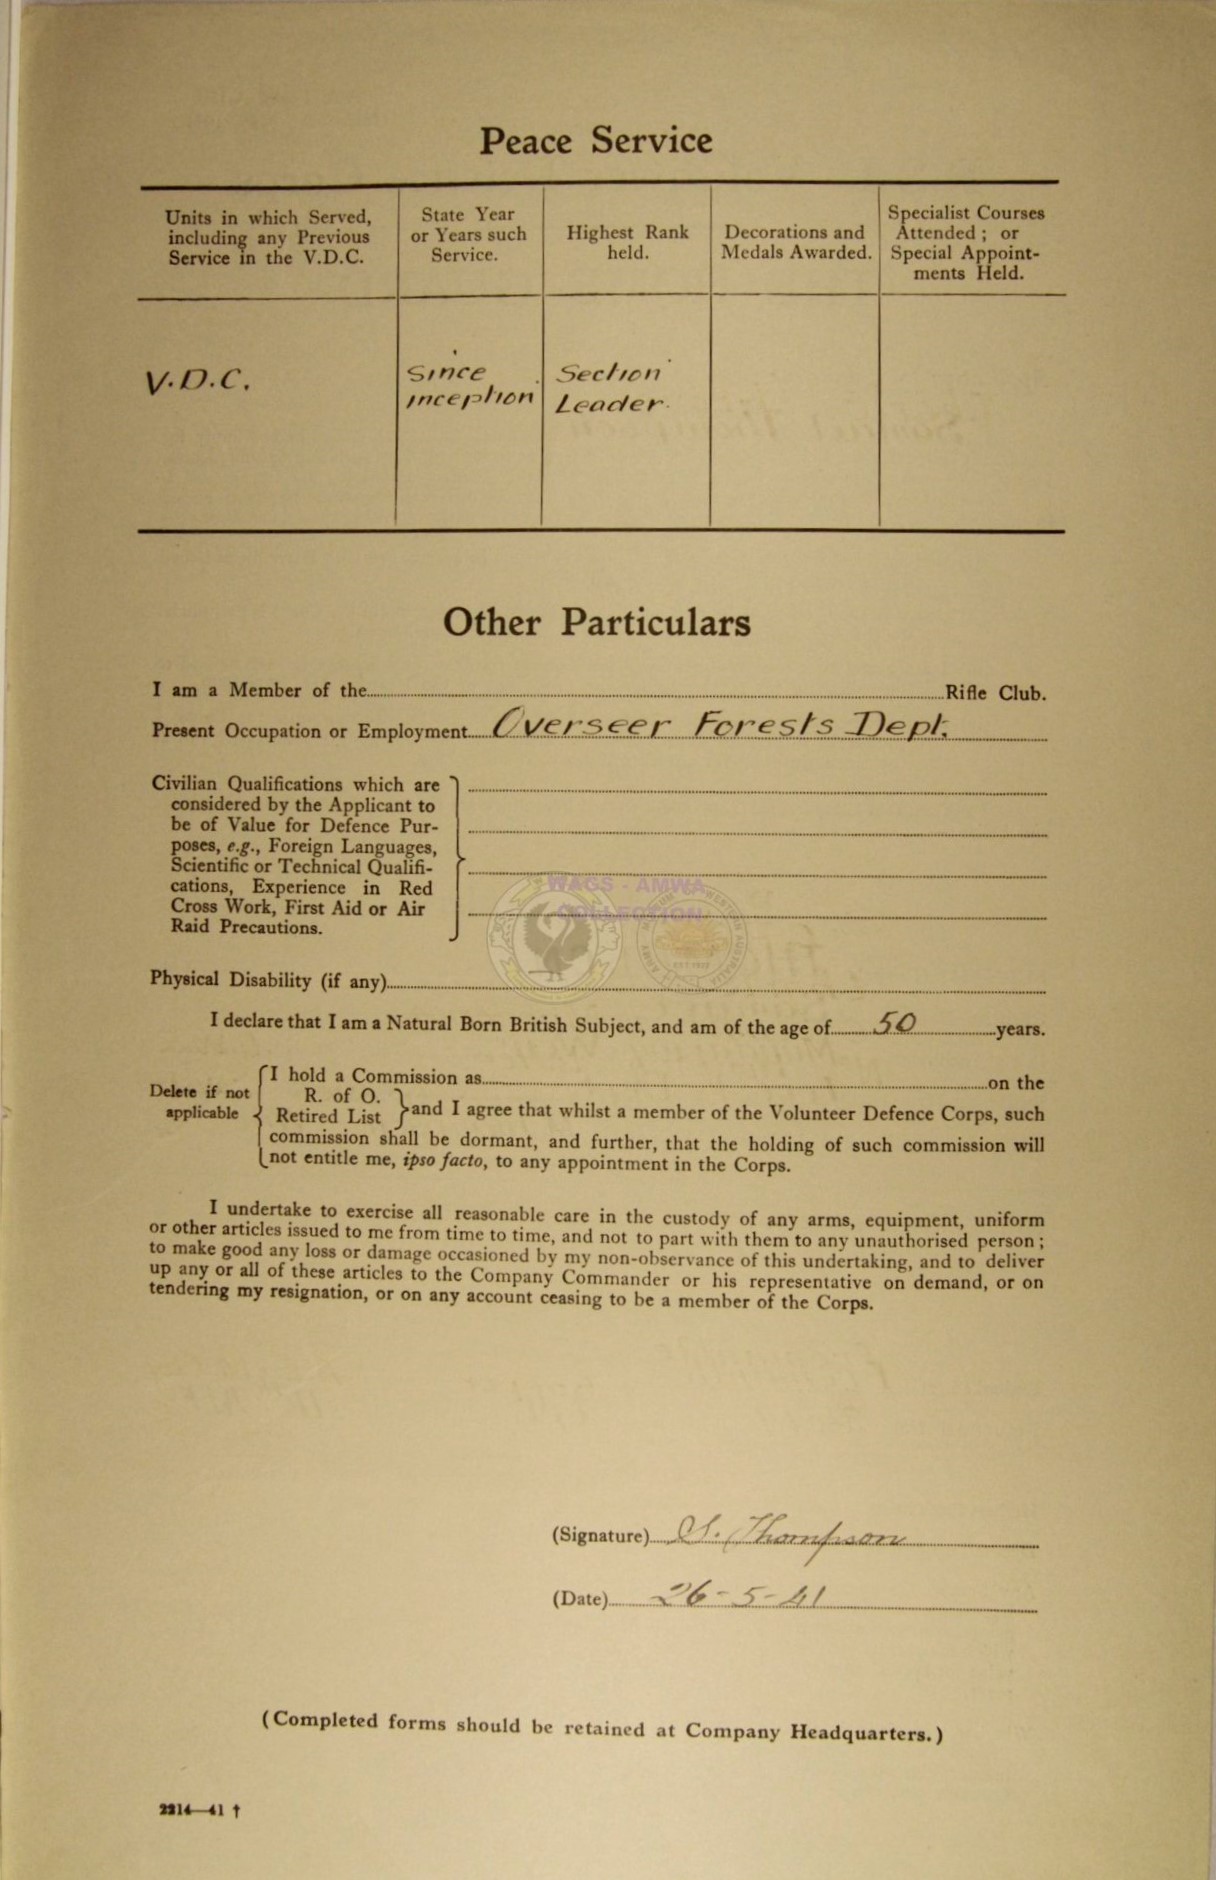 Peace Service
Units in which Served,
including any Previous
Service in the V.D.C.
State Year
or Years such
Service.
Highest Rank
held.
Decorations and
Medals Awarded.
Specialist Courses
Attended ; or
Special Appoint-
ments Held.
V.D.C.
Since
inception
Section
Leader.
Other Particulars
I am a Member of the Rifle Club.
Present Occupation or Employment Overseer Forests Dept.
Civilian Qualifications which are
considered by the Applicant to
be of Value for Defence Pur-
poses, e.g., Foreign Languages,
Scientific or Technical Qualifi-
cations, Experience in Red
Cross Work, First Aid or Air
Raid Precautions.
WAGS - AMWA
COLLECTION
Physical Disability (if any)
I declare that I am a Natural Born British Subject, and am of the age of 50 years.
Delete if not
applicable
I hold a Commission as on the
R. of O.
Retired List
and I agree that whilst a member of the Volunteer Defence Corps, such
commission shall be dormant, and further, that the holding of such commission will
not entitle me, ipso facto, to any appointment in the Corps.
I undertake to exercise all reasonable care in the custody of any arms, equipment, uniform
or other articles issued to me from time to time, and not to part with them to any unauthorised person ;
to make good any loss or damage occasioned by my non-observance of this undertaking, and to deliver
up any or all of these articles to the Company Commander or his representative on demand, or on
tendering my resignation, or on any account ceasing to be a member of the Corps.
(Signature) S. Thompson
(Date) 26-5-41
(Completed forms should be retained at Company Headquarters.)
2214—41 †